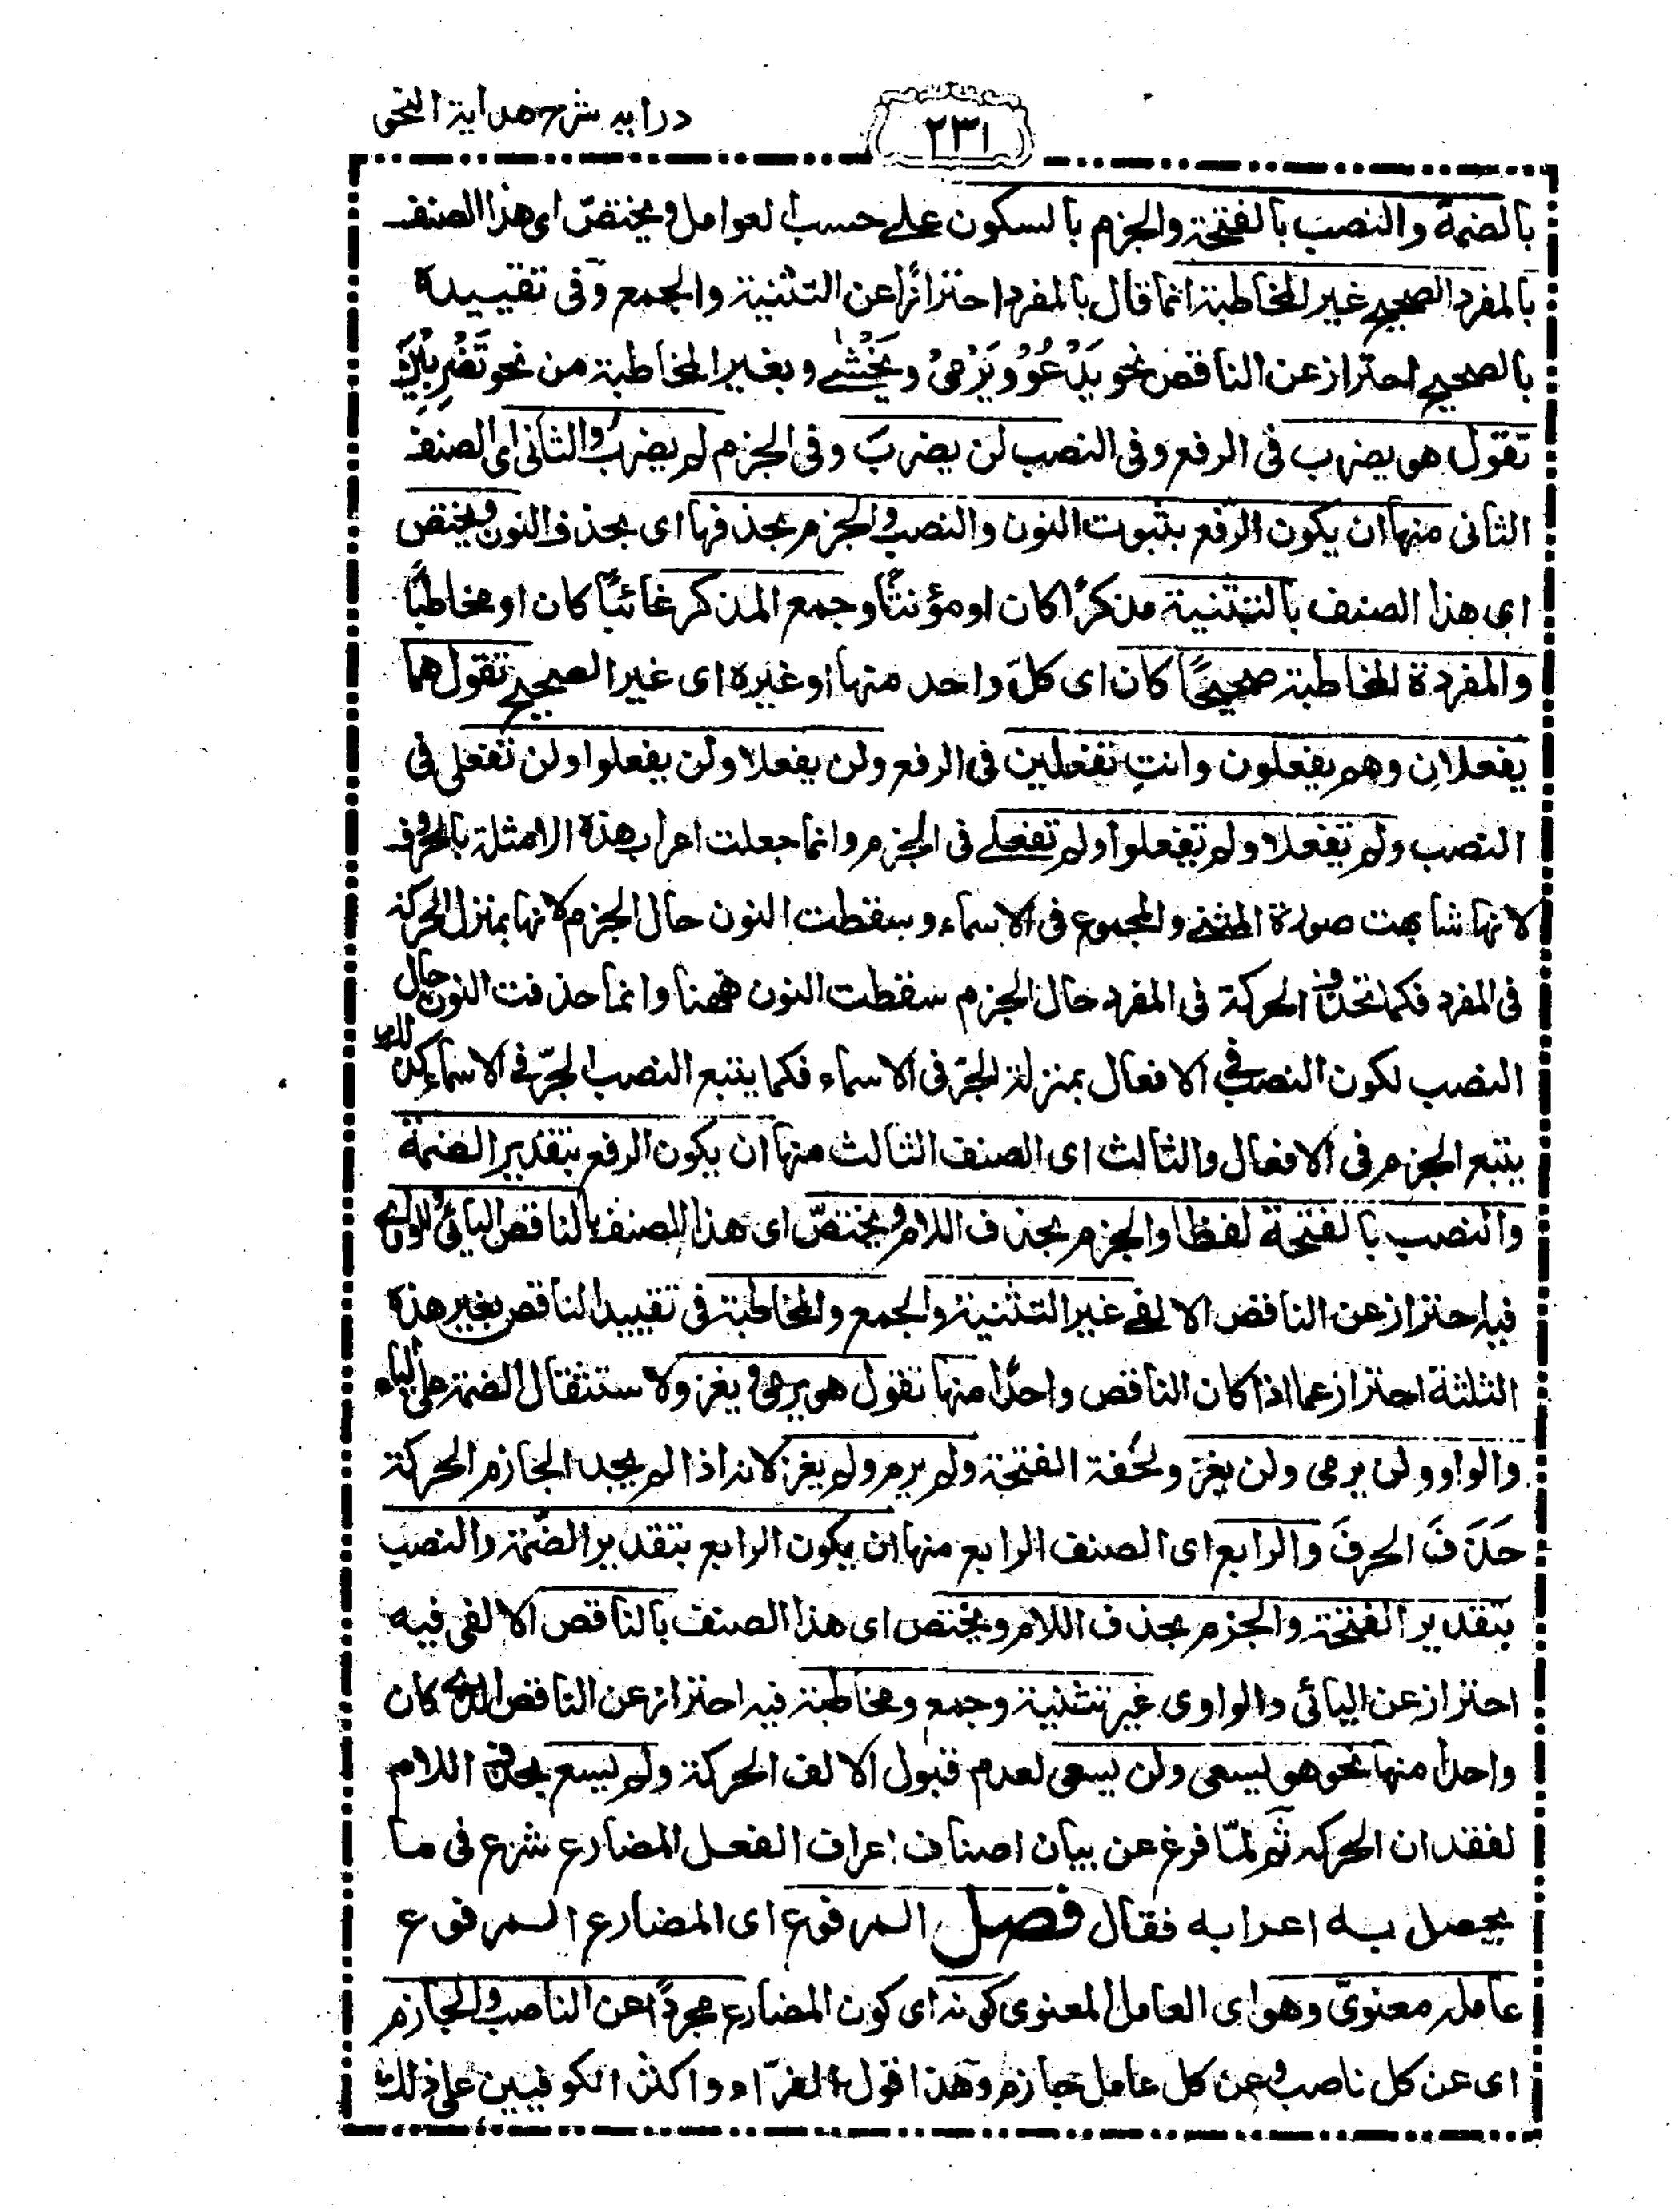 درايه شرح هداية النحو
٢٣١
بالضمة والنصب بالفتحة والجزم بالسكون على حسب العوامل ويختصّ اى هذا الصنف
بالمفرد الصحيح غير المخاطبة انما قال بالمفرد احترازًا عن التثنية والجمع وفى تقييدة
بالصحيح احتراز عن الناقص نحو يَدْعُوْ ويَرْمِىْ ويَخْشٰى وبغير المخاطبة من نحو تَضْرِبِيْنَ
تقول هو يضرب فى الرفع وفى النصب لن يضربَ وفى الجزم لم يضربْ والثانى اى الصنف
الثانى منها ان يكون الرّفع بثبوت النون والنصب والجزم بحذفها اى بحذف النون ويختص
اى هذا الصنف بالتثنية مذكرًا كان او مؤنثًا وجمع المذكر غائبًا كان او مخاطبًا
والمفردة المخاطبة صحيحًا كان اى كلّ واحد منها او غيره اى غير الصحيح تقول هما
يفعلانِ وهم يفعلون وانتِ تفعلين فى الرفع ولن يفعلا ولن يفعلوا ولن تفعلى فى
النصب ولم تفعلا ولم تفعلوا ولم تفعلى فى الجزم وانما جعلت اعراب هذه الامثلة بالحروف
لانها شابهت صورة المثنى والمجموع فى الاسماء وسقطت النون حال الجزم لانها بمنزل الحركة
فى المفرد فكما تحذف الحركة فى المفرد حال الجزم سقطت النون ههنا وانما حذفت النون حال
النصب لكون النصب فى الافعال بمنزلة الجرّ فى الاسماء فكما يتبع النصب الجرّ فى الاسماء كذلك
يتبع الجزم فى الافعال والثالث اى الصنف الثالث منها ان يكون الرفع بتقدير الضمة
والنصب بالفتحة لفظا والجزم بحذف اللام ويختصّ اى هذا الصنف بالناقص اليائى والواوى
فيه احتراز عن الناقص الالفى غير التثنية والجمع والمخاطبة فى تقييد الناقص بغير هذه
الثلثة احتراز عما اذا كان الناقص واحدًا منها تقول هو يرمى ويغزو لاستثقال الضمة على الياء
والواو ولن يرمى ولن يغزو لخفة الفتحة ولم يرم ولم يغز لانه اذا لم يجد الجازم الحركة
حَذَفَ الحرفَ والرابع اى الصنف الرابع منها ان يكون الرابع بتقدير الضّمة والنصب
بتقدير الفتحة والجزم بحذف اللام ويختص اى هذا الصنف بالناقص الالفى فيه
احتراز عن اليائى والواوى غير تثنية وجمع ومخاطبة فيه احتراز عن الناقص الذى كان
واحدا منها نحو هو يسعى ولن يسعى لعدم قبول الالف الحركة ولم يسع بحذف اللام
لفقدان الحركه ثم لمّا فرغ عن بيان اصناف اعراف الفعل المضارع شرع فى ما
يحصل به اعرابه فقال فصل المرفوع اى المضارع المرفوع
عامله معنوىّ وهو اى العامل المعنوى كونه اى كون المضارع مجردًا عن الناصب والجازم
اى عن كل ناصب وعن كل عامل جازم وهذا قول الفرّاء واكثر الكوفيين على ذلك